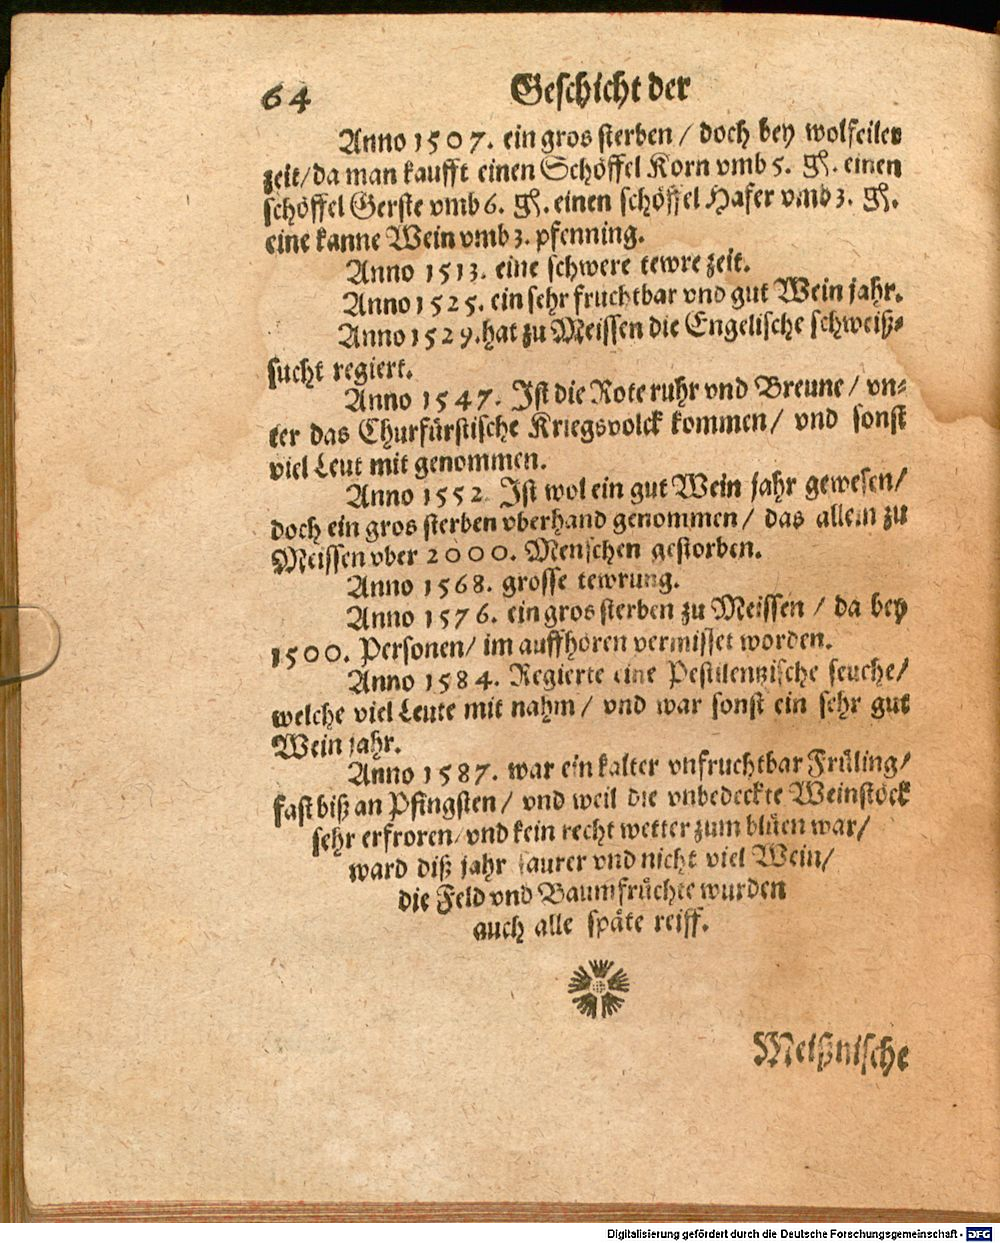 64 Geschicht der
Anno 1507. ein gros sterben / doch bey wolfeiler
zeit/da man kaufft einen Schöffel Korn vmb 5. gl. einen
schöffel Gerste vmb 6. gl. einen schöffel Hafer vmb 3. gl.
eine kanne Wein vmb 3. pfenning.
Anno 1513. eine schwere tewre zeit.
Anno 1525. ein sehr fruchtbar vnd gut Wein jahr.
Anno 1529. hat zu Meissen die Engelische schweiß-
sucht regiert.
Anno 1547. Ist die Rote ruhr vnd Breune / vn-
ter das Churfürstische Kriegsvolck kommen/ vnd sonst
viel Leut mit genommen.
Anno 1552. Ist wol ein gut Wein jahr gewesen/
doch ein gros sterben vberhand genommen/ das allein zu
Meissen vber 2000. Menschen gestorben.
Anno 1568. grosse tewrung.
Anno 1576. ein gros sterben zu Meissen / da bey
1500. Personen/ im auffhören vermisset worden.
Anno 1584. Regierte eine Pestilentzische seuche/
welche viel Leute mit nahm/ vnd war sonst ein sehr gut
Wein jahr.
Anno 1587. war ein kalter vnfruchtbar Früling/
fast biß an Pfingsten/ vnd weil die vnbedeckte Weinstöck
sehr erfroren/ vnd kein recht wetter zum blüen war/
ward diß jahr saurer vnd nicht viel Wein/
die Feld vnd Baumfrüchte wurden
auch alle späte reiff.
Meißnische
Digitalisierung gefördert durch die Deutsche Forschungsgemeinschaft - DFG